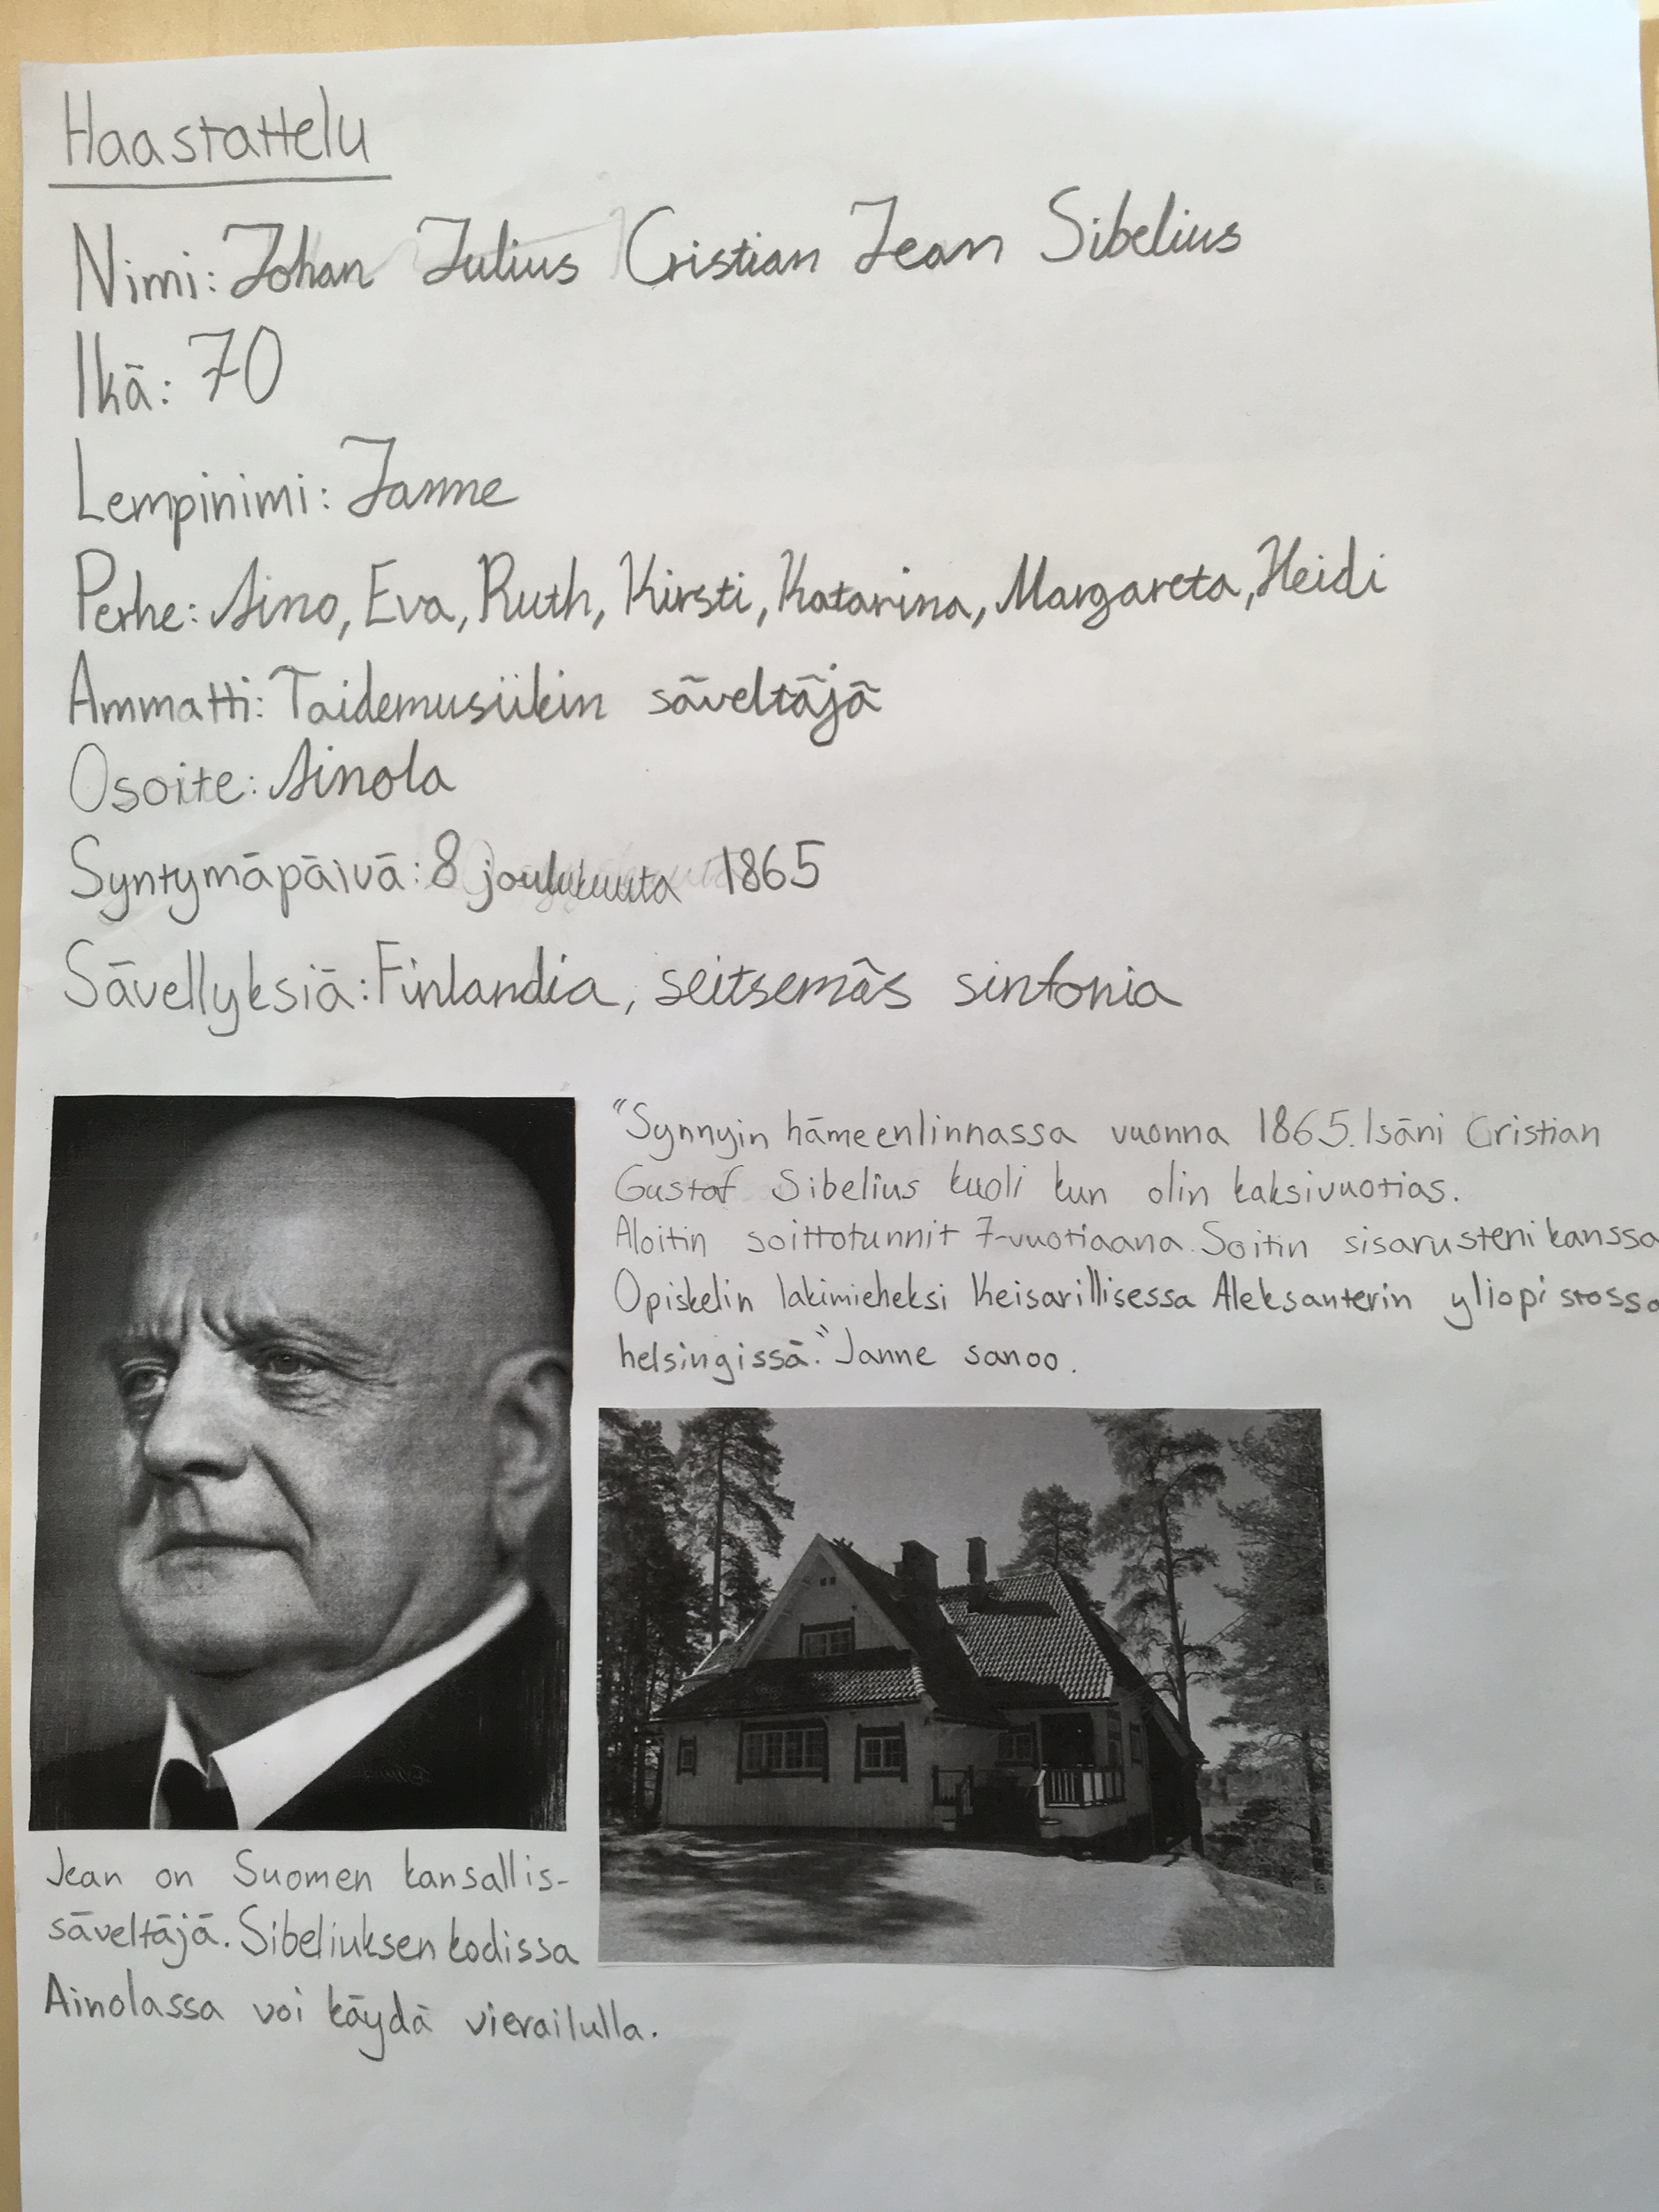 Haastattelu
Nimi: Johan Julius Cristian Jean Sibelius
Ikä: 70
Lempinimi: Janne
Perhe: Aino, Eva, Ruth, Kirsti, Katarina, Margareta, Heidi
Ammatti: Taidemusiikin säveltäjä
Osoite: Ainola
Syntymäpäivä: 8 joulukuuta 1865
Sävellyksiä: Finlandia, seitsemäs sinfonia
"Synnyin hämeenlinnassa vuonna 1865. Isäni Cristian
Gustaf Sibelius kuoli kun olin kaksivuotias.
Aloitin soittotunnit 7-vuotiaana. Soitin sisarusteni kanssa
Opiskelin lakimieheksi Keisarillisessa Aleksanterin yliopistossa
helsingissä." Janne sanoo.
Jean on Suomen kansallis-
säveltäjä. Sibeliuksen kodissa
Ainolassa voi käydä vierailulla.